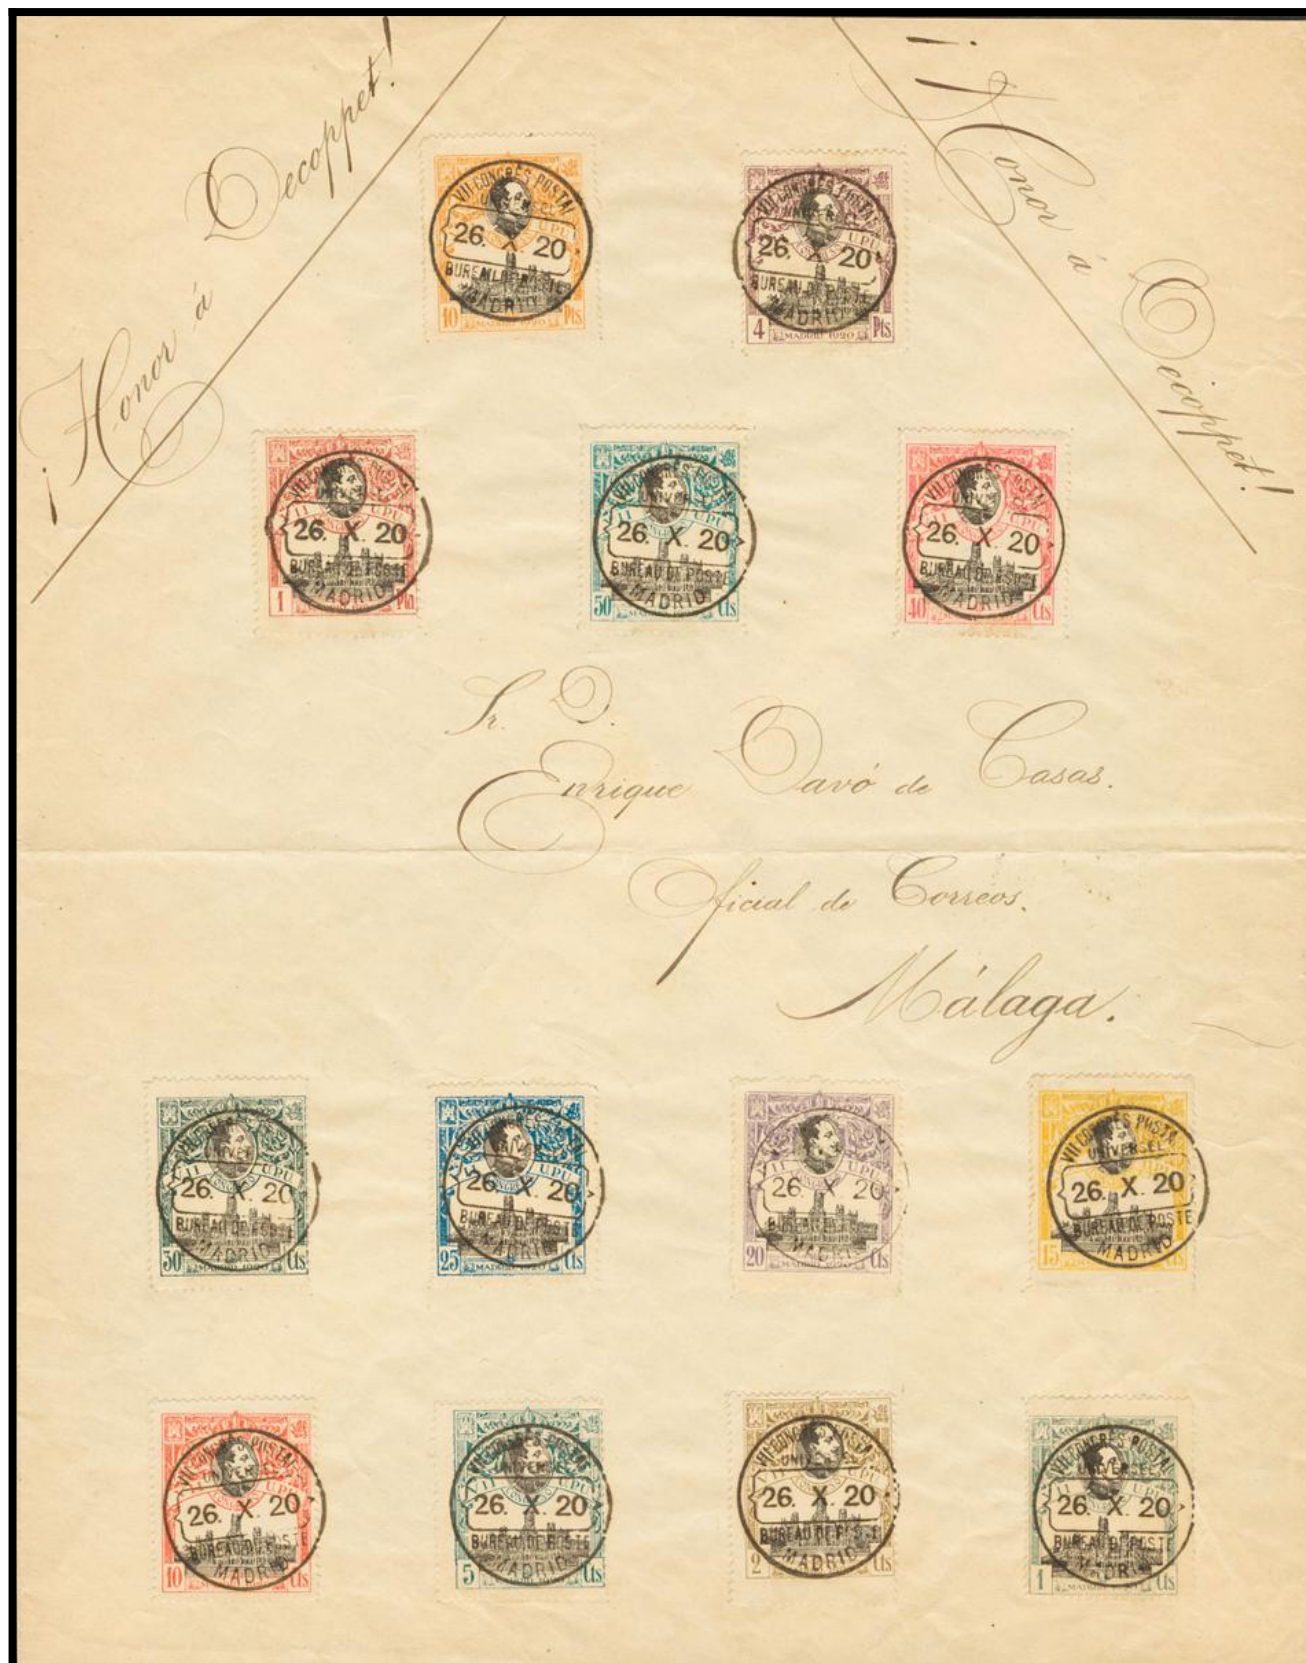 ¡Honor á Decoppet!
¡Honor á Decoppet!
VII CONGRÈS POSTAL
UNIVERSEL
UPU
26. X. 20
BUREAU DE POSTE
MADRID
10 Pts
VII CONGRÈS POSTAL
UNIVERSEL
UPU
26. X. 20
BUREAU DE POSTE
MADRID
4 MADRID 1920 Pts
VII CONGRÈS POSTAL
UPU
26. X. 20
BUREAU DE POSTE
MADRID
1 Pta
VII CONGRÈS POSTAL
UNIVERSEL
26. X. 20
BUREAU DE POSTE
MADRID
50 Cts
VII CONGRÈS POSTAL
UNIVERSEL
UPU
26. X. 20
BUREAU DE POSTE
MADRID
40 Cts
Sr. D.
Enrique Davó de Casas.
Oficial de Correos.
Málaga.
UNIVERSEL
UPU
26. X. 20
BUREAU DE POSTE
MADRID
30 MADRID 1920 Cts
VII CONGRÈS POSTAL
UPU
26. X. 20
BUREAU DE POSTE
MADRID
25 MADRID 1920 Cts
UPU
26. X. 20
BUREAU DE POSTE
MADRID
20 MADRID 1920 Cts
VII CONGRÈS POSTAL
UNIVERSEL
26. X. 20
BUREAU DE POSTE
MADRID
15 Cts
VII CONGRÈS POSTAL
UNIVERSEL
26. X. 20
BUREAU DE POSTE
MADRID
10 Cts
VII CONGRÈS POSTAL
UNIVERSEL
26. X. 20
BUREAU DE POSTE
MADRID
5 Cts
VII CONGRÈS POSTAL
UNIVERSEL
26. X. 20
BUREAU DE POSTE
MADRID
2 Cts
VII CONGRÈS POSTAL
UNIVERSEL
26. X. 20
BUREAU DE POSTE
MADRID
1 Cts